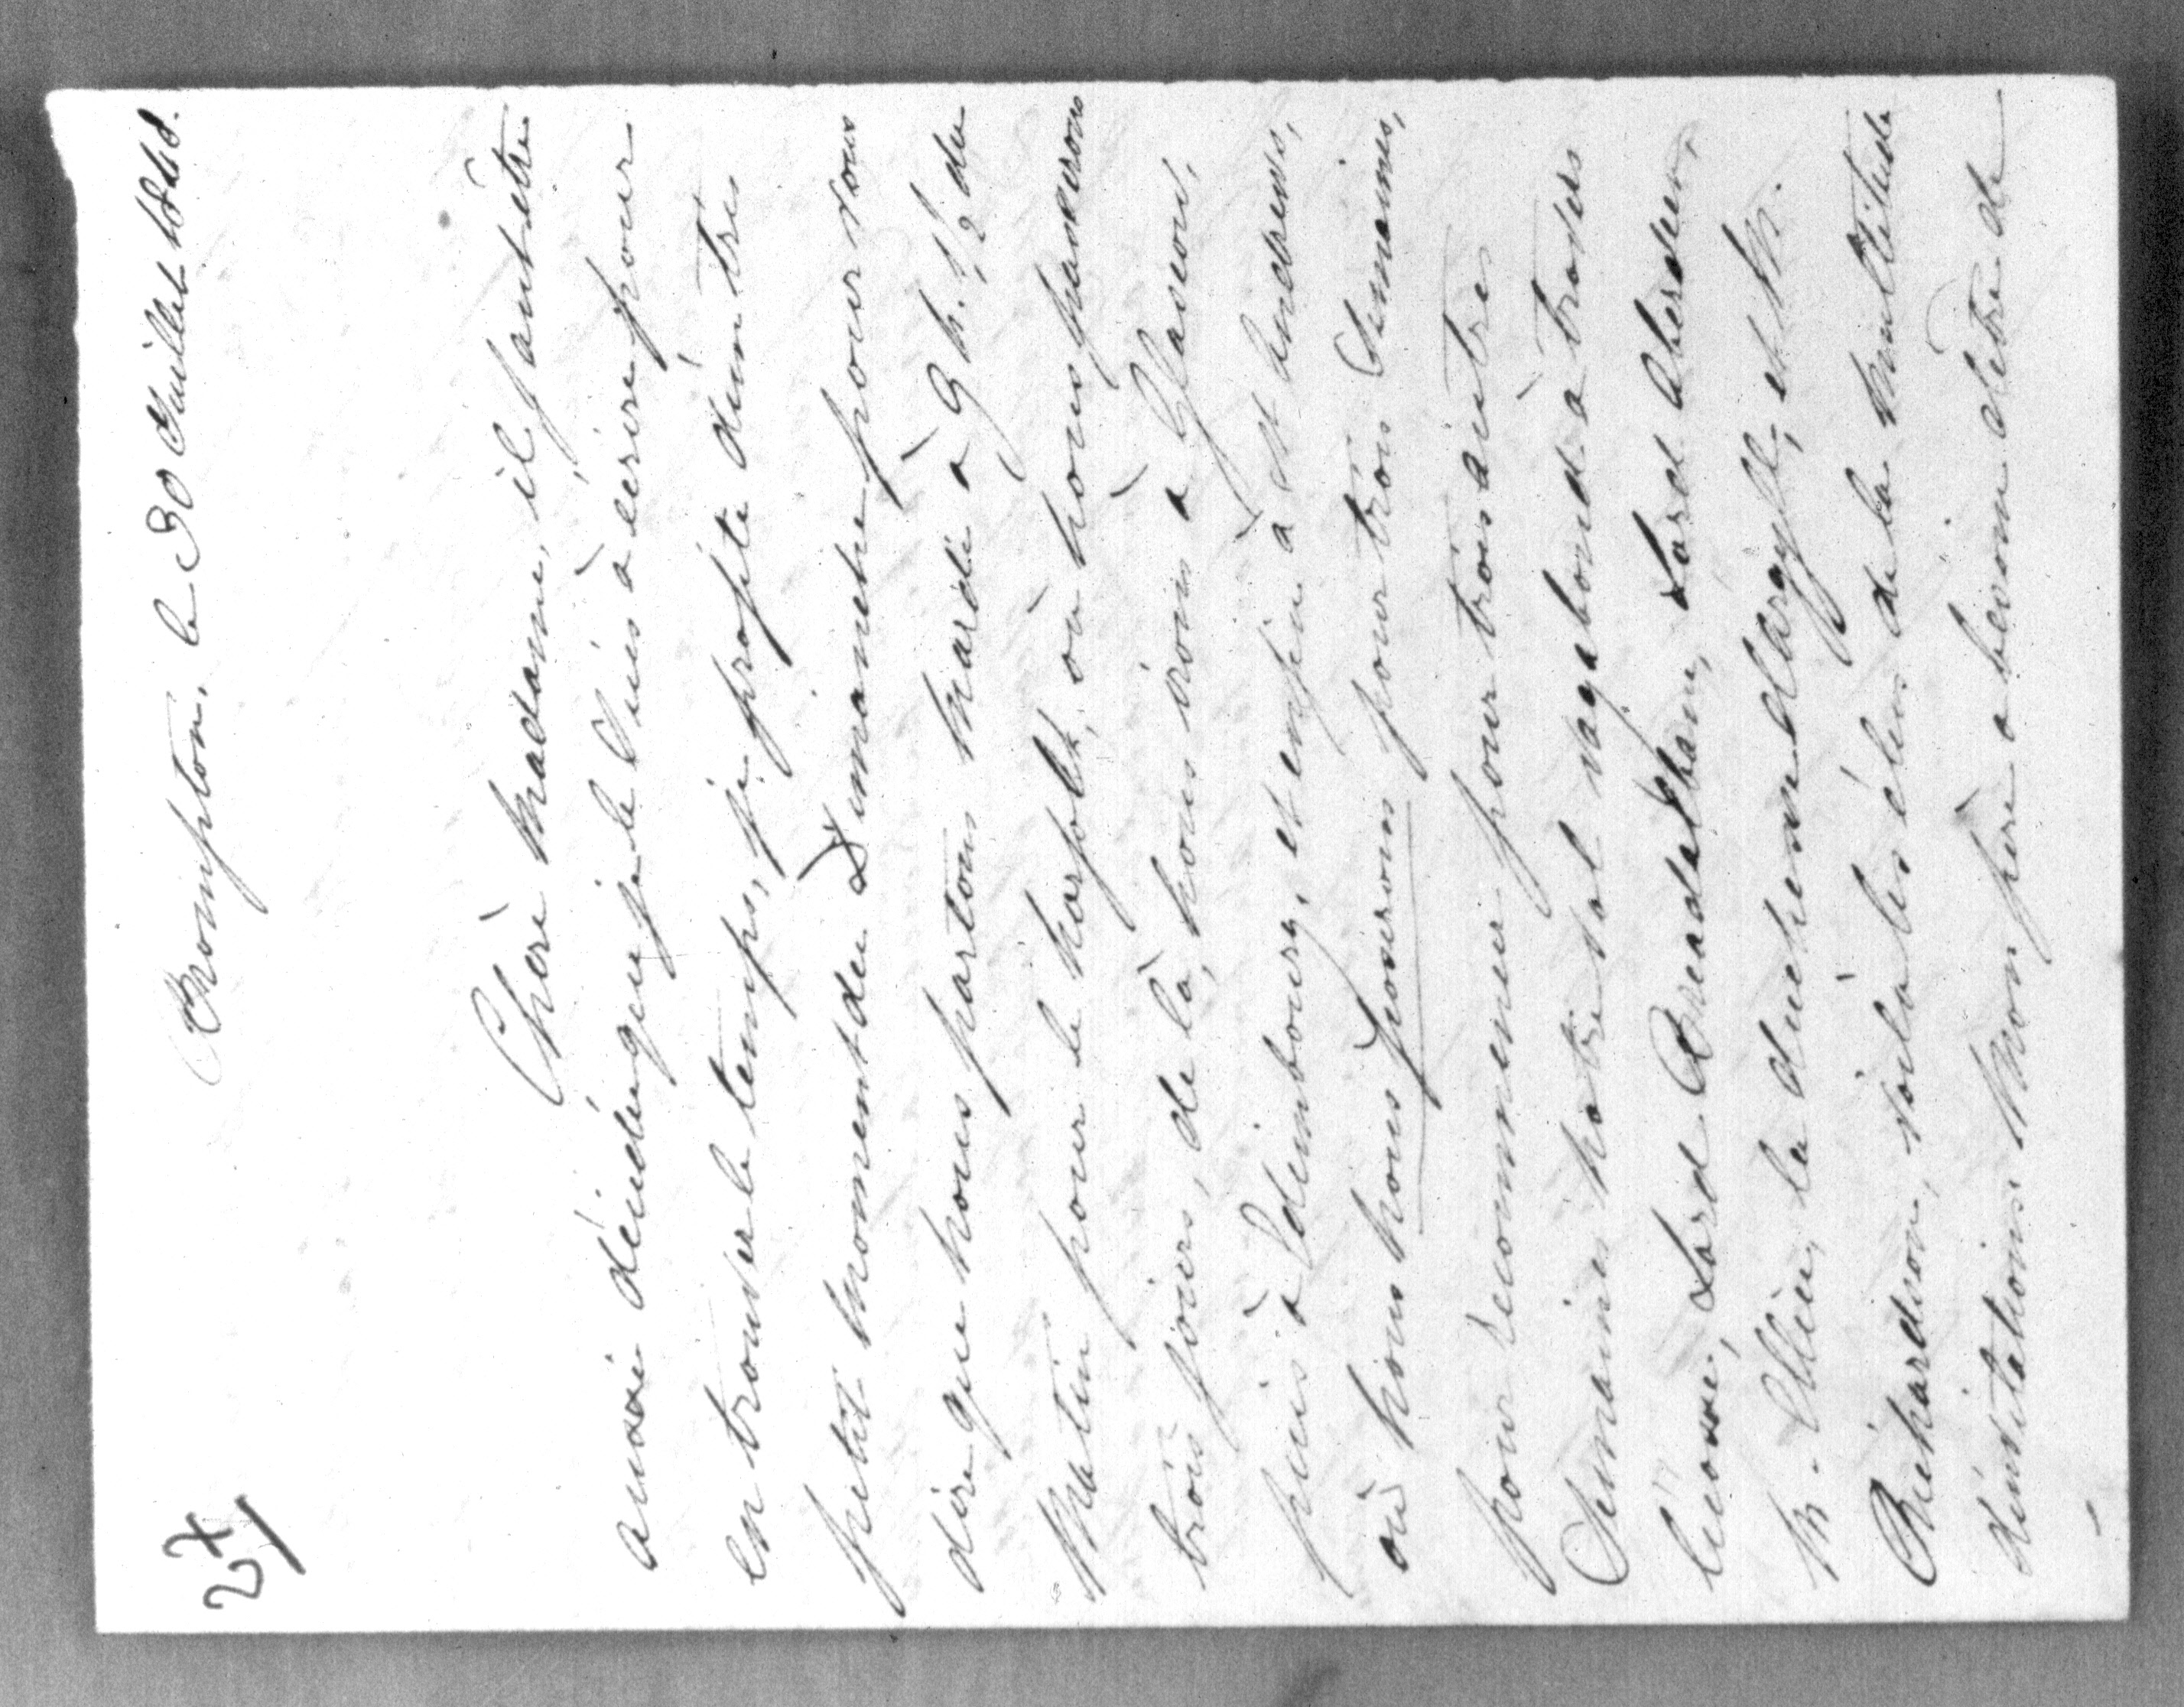 27
Brompton, le 30 Juillet 1848.
Chère Madame, il faut être
aussi décidé que je le suis à écrire pour
en trouver le temps, je profite d'un très
petit moment du Dimanche pour vous
dire que nous partons Mardi à 9 h. 1/2 du
Matin pour le Norfolk, où nous passerons
trois jours, de là, nous irons à Glascow,
puis à Edimbourg, et enfin à St Andrews,
où nous nous poserons pour trois Semaines,
pour recommencer pour trois autres
Semaines notre vol vagabond à travers
l'Ecosse, Lord Breadalbane, Lord Aberdeen,
M. Ellice, la duchesse d'Argyll, et M.
Richardson, voilà les élus de la multitude
d'invitations. Mon père a besoin d'être de